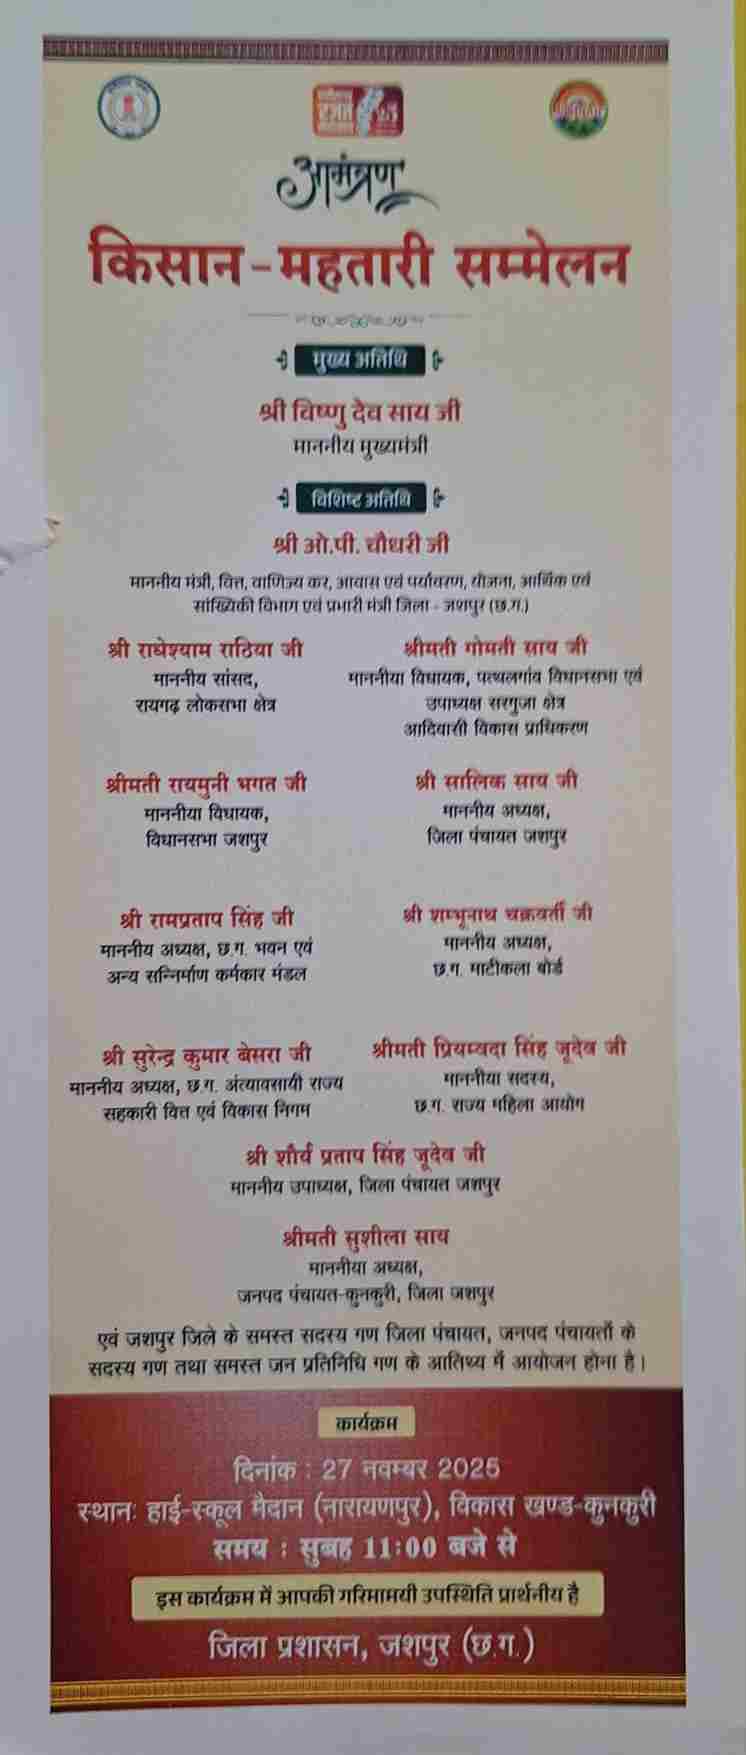 आमंत्रण
किसान - महतारी सम्मेलन
मुख्य अतिथि
श्री विष्णु देव साय जी
माननीय मुख्यमंत्री
विशिष्ट अतिथि
श्री ओ.पी. चौधरी जी
माननीय मंत्री, वित्त, वाणिज्य कर, आवास एवं पर्यावरण, योजना, आर्थिक एवं
सांख्यिकी विभाग एवं प्रभारी मंत्री जिला - जशपुर (छ.ग.)
श्री राधेश्याम राठिया जी
माननीय सांसद,
रायगढ़ लोकसभा क्षेत्र
श्रीमती गोमती साय जी
माननीया विधायक, पत्थलगांव विधानसभा एवं
उपाध्यक्ष सरगुजा क्षेत्र
आदिवासी विकास प्राधिकरण
श्रीमती रायमुनी भगत जी
माननीया विधायक,
विधानसभा जशपुर
श्री सालिक साय जी
माननीय अध्यक्ष,
जिला पंचायत जशपुर
श्री रामप्रताप सिंह जी
माननीय अध्यक्ष, छ.ग. भवन एवं
अन्य सन्निर्माण कर्मकार मंडल
श्री शम्भूनाथ चक्रवर्ती जी
माननीय अध्यक्ष,
छ.ग. माटीकला बोर्ड
श्री सुरेन्द्र कुमार बेसरा जी
माननीय अध्यक्ष, छ.ग. अंत्यावसायी राज्य
सहकारी वित्त एवं विकास निगम
श्रीमती प्रियम्वदा सिंह जूदेव जी
माननीया सदस्य,
छ.ग. राज्य महिला आयोग
श्री शौर्य प्रताप सिंह जूदेव जी
माननीय उपाध्यक्ष, जिला पंचायत जशपुर
श्रीमती सुशीला साय
माननीया अध्यक्ष,
जनपद पंचायत-कुनकुरी, जिला जशपुर
एवं जशपुर जिले के समस्त सदस्य गण जिला पंचायत, जनपद पंचायतों के
सदस्य गण तथा समस्त जन प्रतिनिधि गण के आतिथ्य में आयोजन होना है।
कार्यक्रम
दिनांक : 27 नवम्बर 2025
स्थानः हाई-स्कूल मैदान (नारायणपुर), विकास खण्ड-कुनकुरी
समय : सुबह 11:00 बजे से
इस कार्यक्रम में आपकी गरिमामयी उपस्थिति प्रार्थनीय है
जिला प्रशासन, जशपुर (छ.ग.)